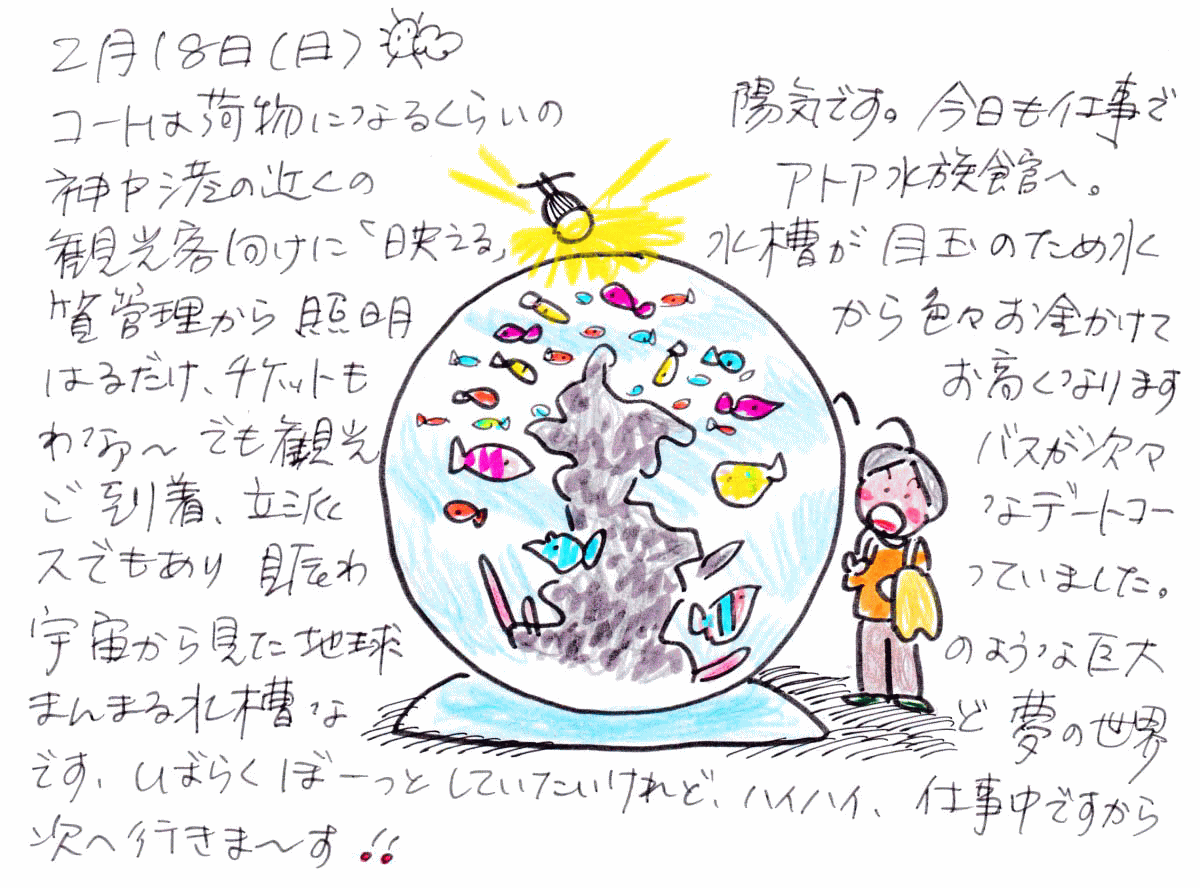 2月18日(日)
コートは荷物になるくらいの 陽気です。今日も仕事で
神戸港の近くの アトア水族館へ。
観光客向けに「映える」 水槽が目玉のため水
質管理から照明 から色々お金かけて
はるだけ、チケットも お高くなります
わなぁ〜でも観光 バスが次々
ご到着、立派 なデートコー
スでもあり賑わ っていました。
宇宙から見た地球 のような巨大
まんまる水槽な ど夢の世界
です、しばらくぼーっとしていたいけれど、ハイハイ、仕事中ですから
次へ行きま〜す!!